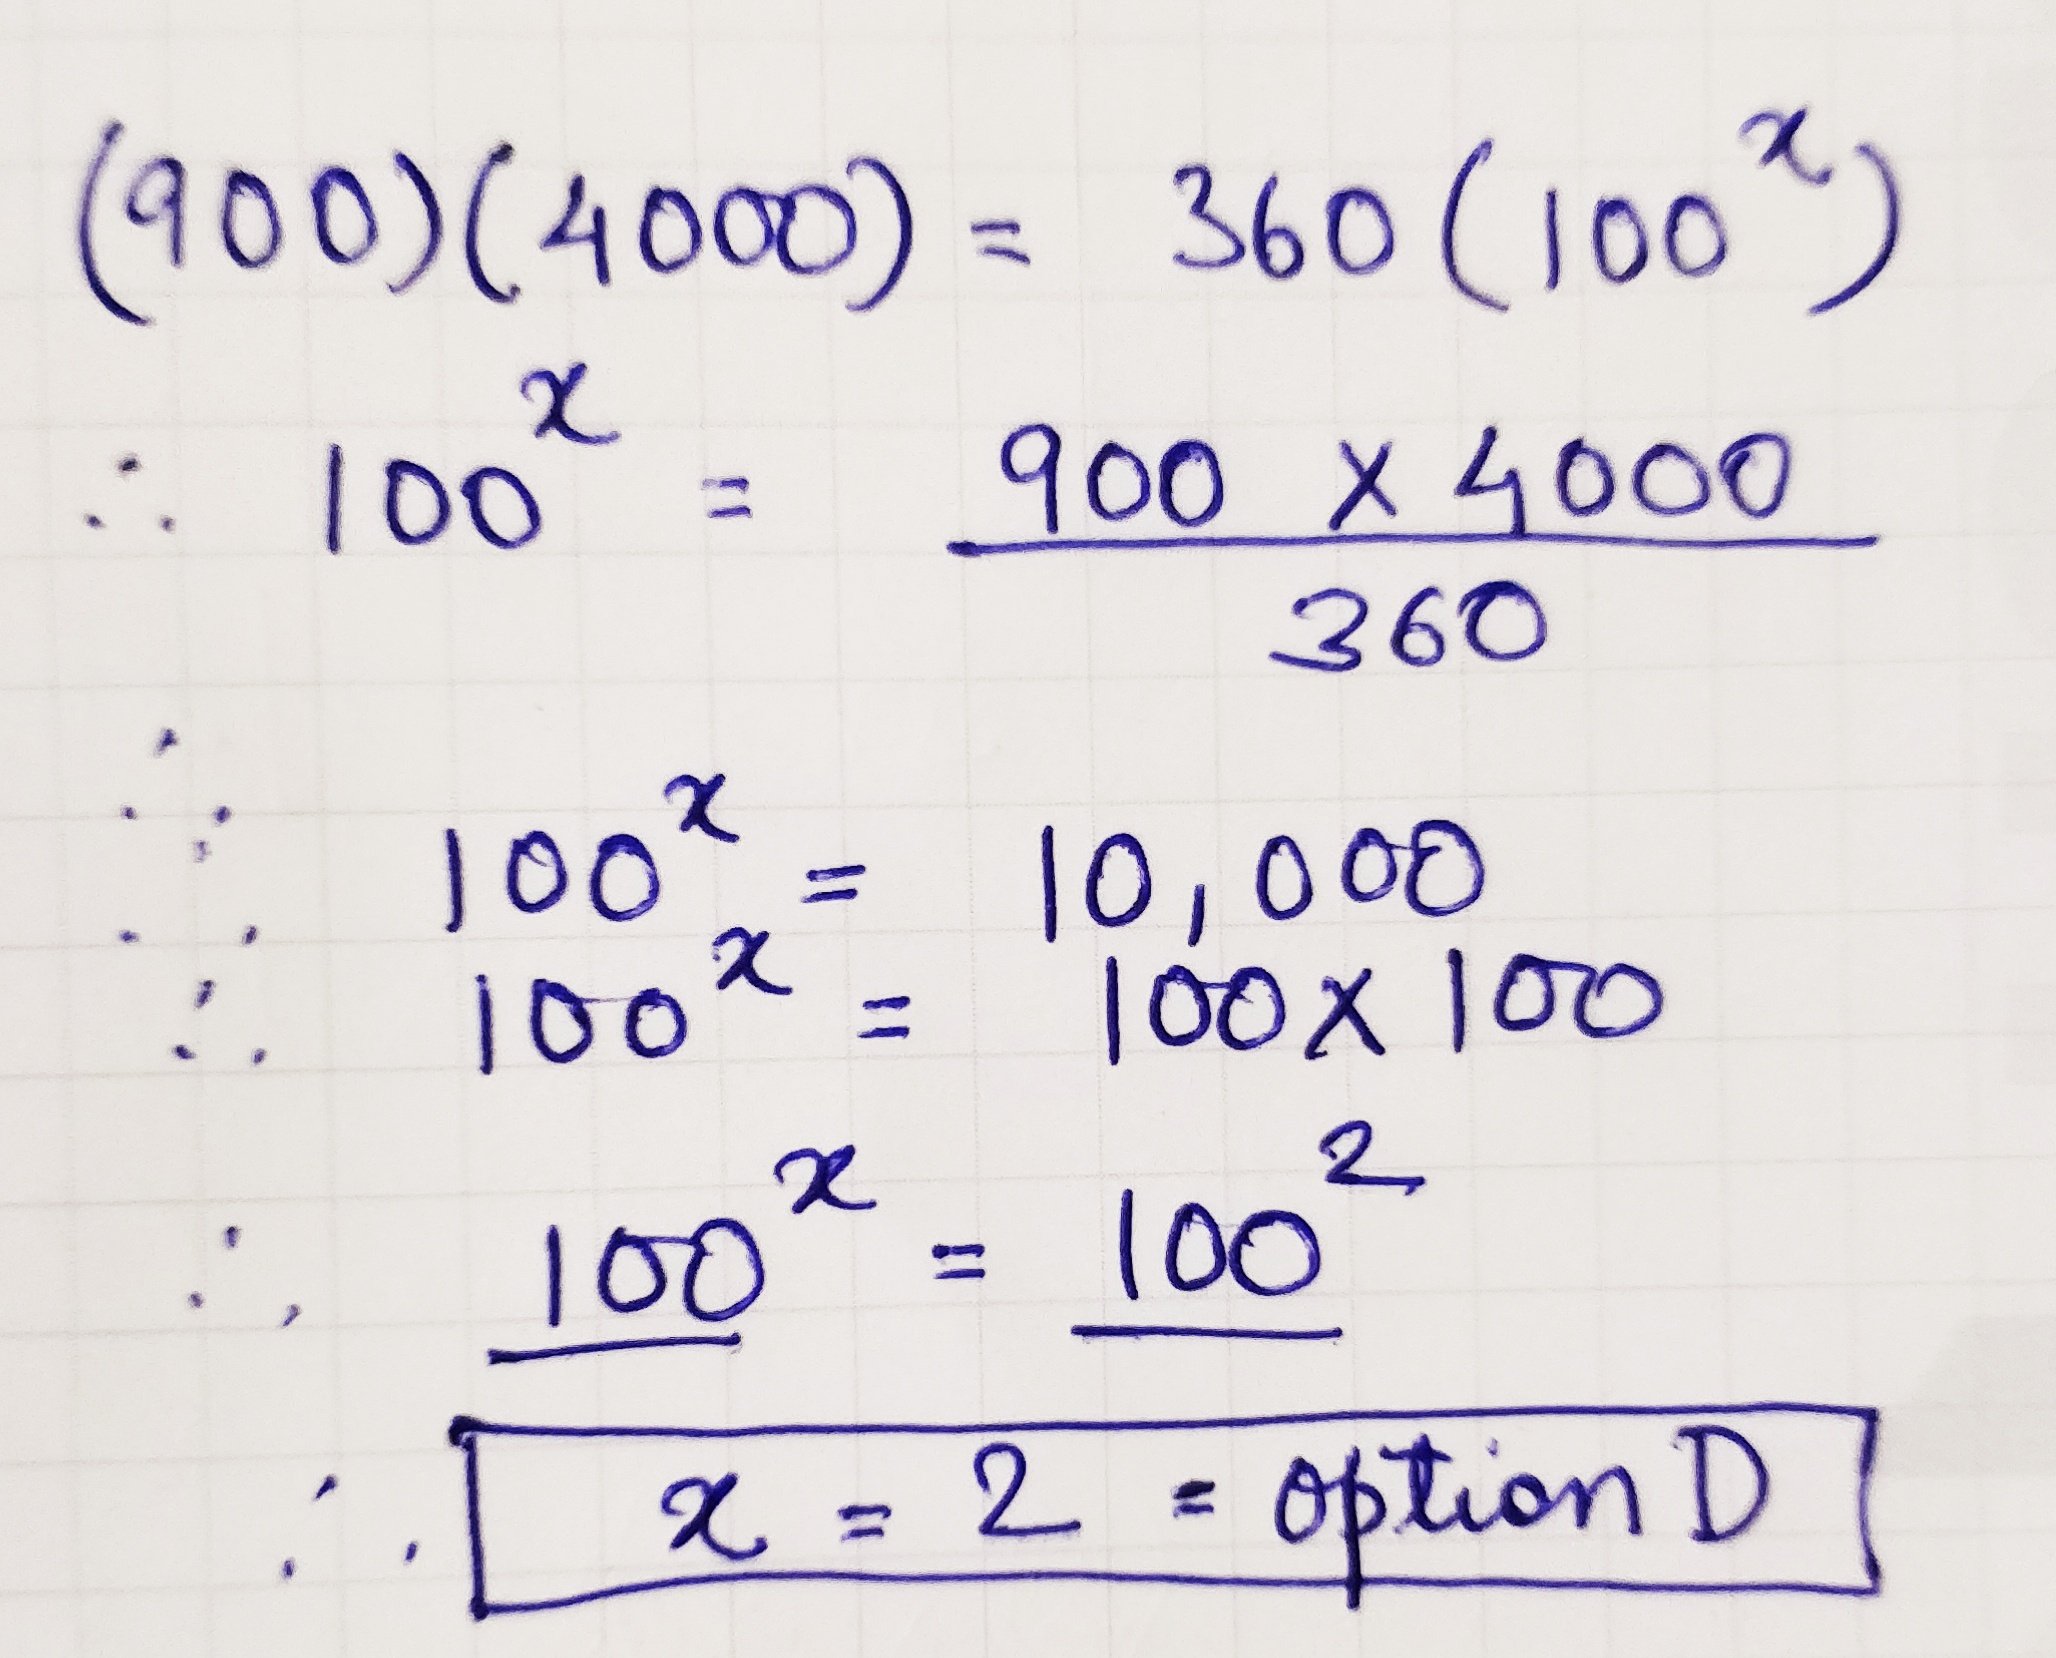 (900)(4000) = 360(100ˣ)
∴ 100ˣ = 900 × 4000 / 360
∴ 100ˣ = 10,000
∴ 100ˣ = 100 × 100
∴ 100ˣ = 100²
∴ x = 2 = option D